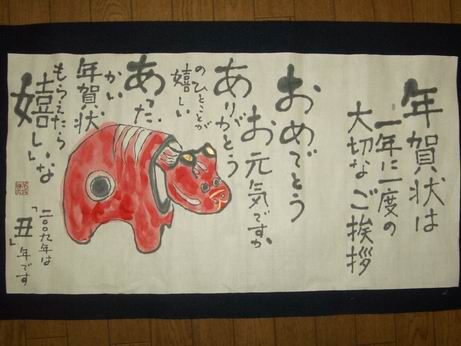 年賀状は
一年に一度の
大切なご挨拶
おめでとう
お元気ですか
ありがとう
のひとことが
嬉しい
あったかい
年賀状
もらえたら
嬉しいな
二〇〇九年は
「丑」年です